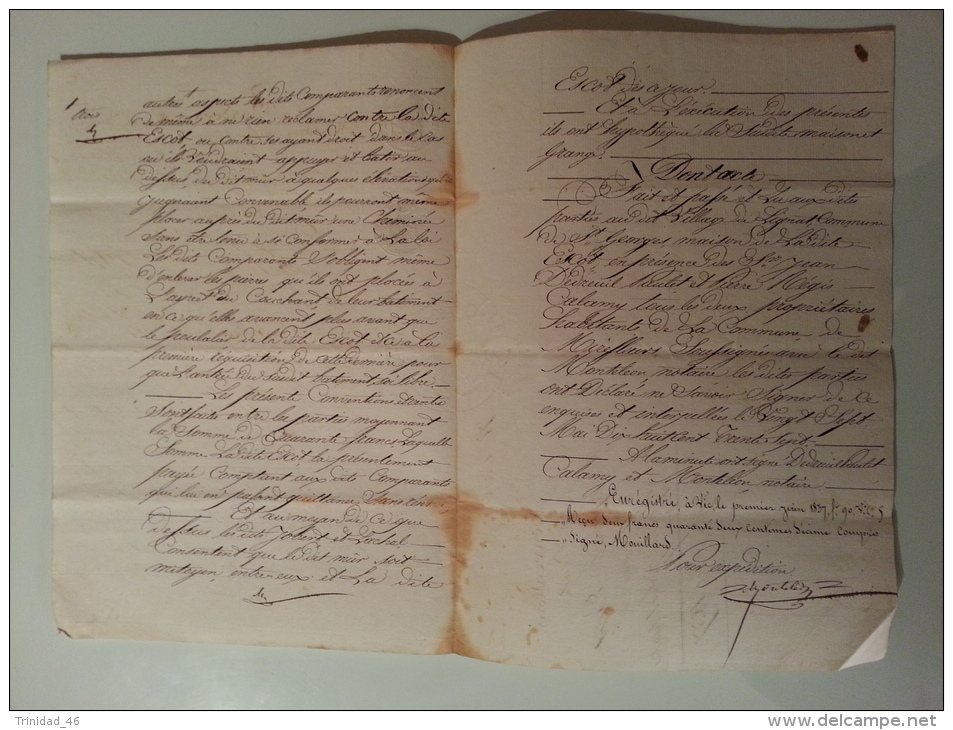 trois
autres aspects les dits Comparants renoncent
de même à ne rien reclamer Contre la dite
Escot, ou contre ses ayant droit dans le Cas
où ils Voudraient appuyer et batir au
dessus du dit mûr à quelques élévations qu'ils
jugeaient Convenable ils pourront même
placer auprès du dit mûr une Cheminée
sans être tenu à se conformer à La loi
Les dits Comparants S'obligent même
d'enlever les pierres qu'ils ont placées à
L'aspect du Couchant de leur batiment
en ce qu'elles avancent plus avant que
le de la dite Escot et ce à la
première requisition de cette dernière pour
que L'entrée du susdit batiment soit libre.
Les présente Conventions
Sont faites entre les parties moyennant
la Somme de Quarante francs Laquelle
Somme La dite Escot a présentement
payée Comptant aux dits Comparants
qui lui en passent quittance Sans réserve
Et au moyen de Ce que
dessus les dits Jobert et Lachal
Consentent que le dit mûr soit
mitoyen, entre eux et La dite
Escot dès ce jour.
Et à L'éxécution des présentes
ils ont hypothéqué la Susdite maison et
Grange.
Dont acte
Fait et passé et Lu aux dites
parties au dit Village de Lignat Commune
de St Georges maison de La dite
Escot, en présence des Srs Jean
Dedreuil Paulet et Pierre Regis
Calamy tous les deux propriétaires
habitants de La Commune de
Mirefleurs Soussignés avec le dit
Monthléon, notaire, les dites parties
ont Déclaré ne Savoir Signer de Ce
enquises et interpellées le Vingt Sept
Mai Dix huit cent Trente Sept.
A la minute ont signé Dedreuil Paulet
Calamy et Monthléon, notaire
Enrégistré, à Vic, le premier juin 1837, fo 90. Vo Ce 5
Reçu deux francs quarante deux centimes décime compris
Signé, Mouillard.
Pour expédition
Trinidad_46
http://www.delcampe.net